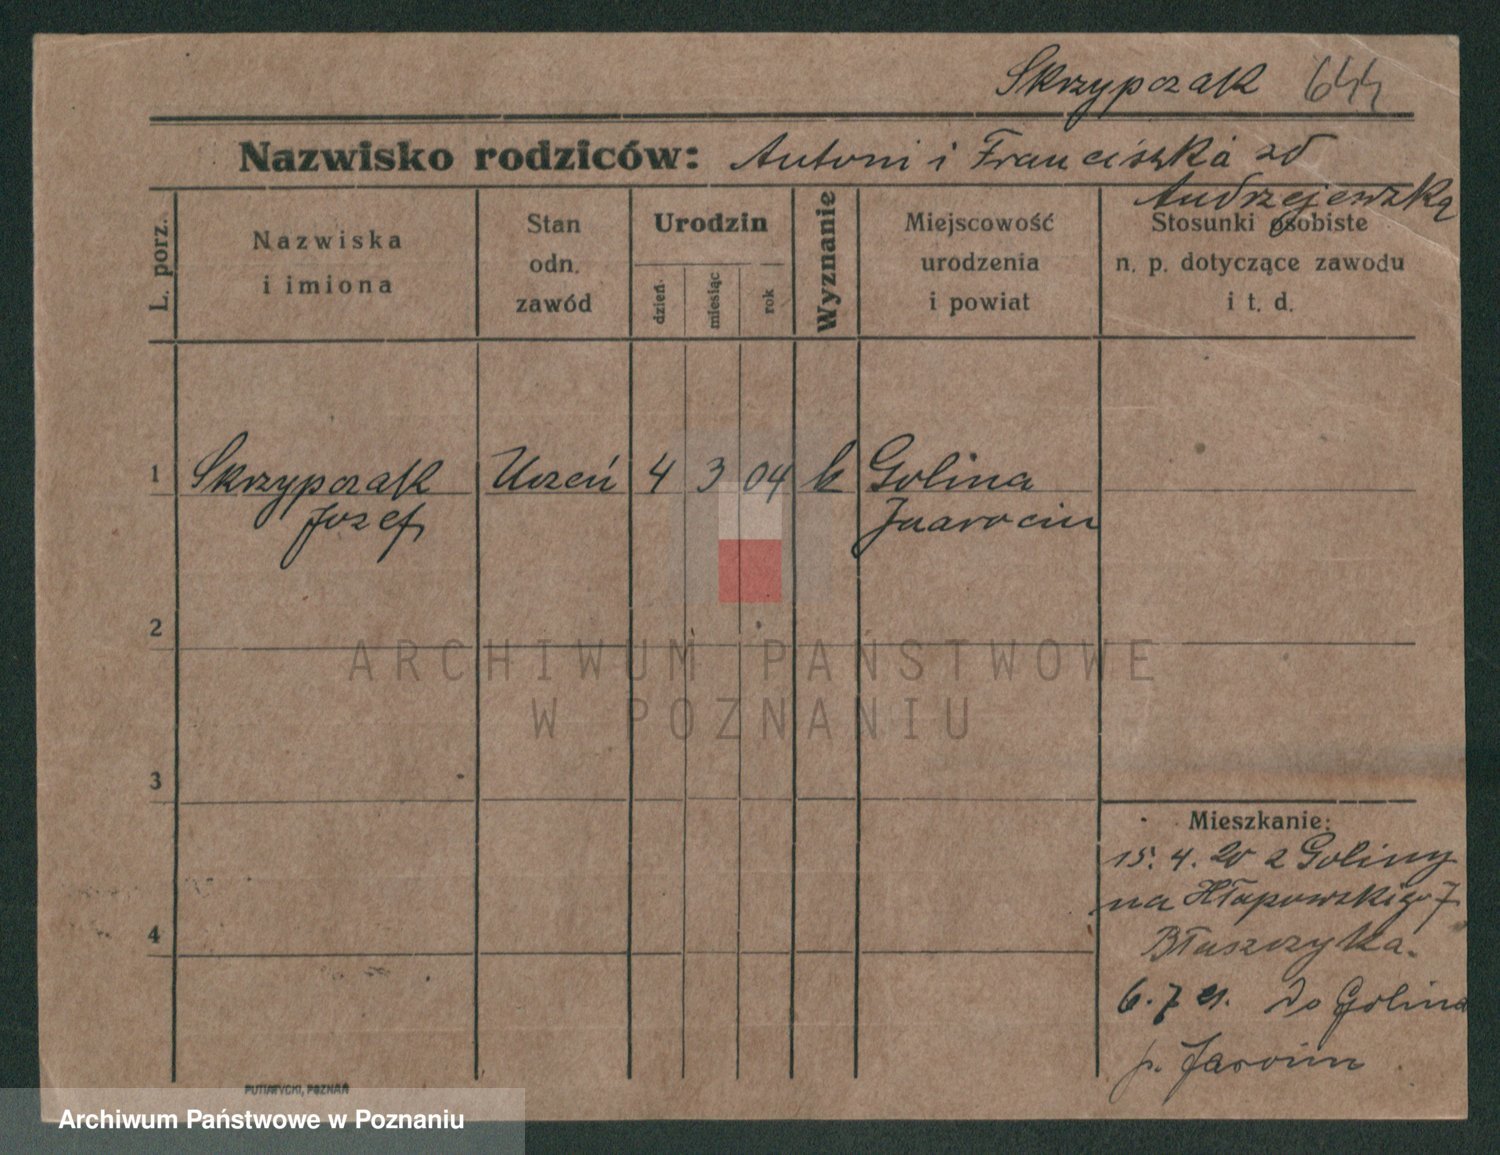 Skrzypczak 644
Nazwisko rodziców: Antoni i Franciszka zd
Andrzejewską
L. porz.
Nazwiska
i imiona
Stan
odn.
zawód
Urodzin
dzień
miesiąc
rok
Wyznanie
Miejscowość
urodzenia
i powiat
Stosunki osobiste
n. p. dotyczące zawodu
i t. d.
1 Skrzypczak Uczeń 4 3 04 k Golina
Jozef Jaarocin
2
ARCHIWUM PAŃSTWOWE
W POZNANIU
3
Mieszkanie:
15. 4. 20 z Goliny
na Hłapowskiego 7
Błaszczyka.
4
6. 7 21. do Golina
p. Jarocin
PUTIATYCKI, POZNAŃ
Archiwum Państwowe w Poznaniu